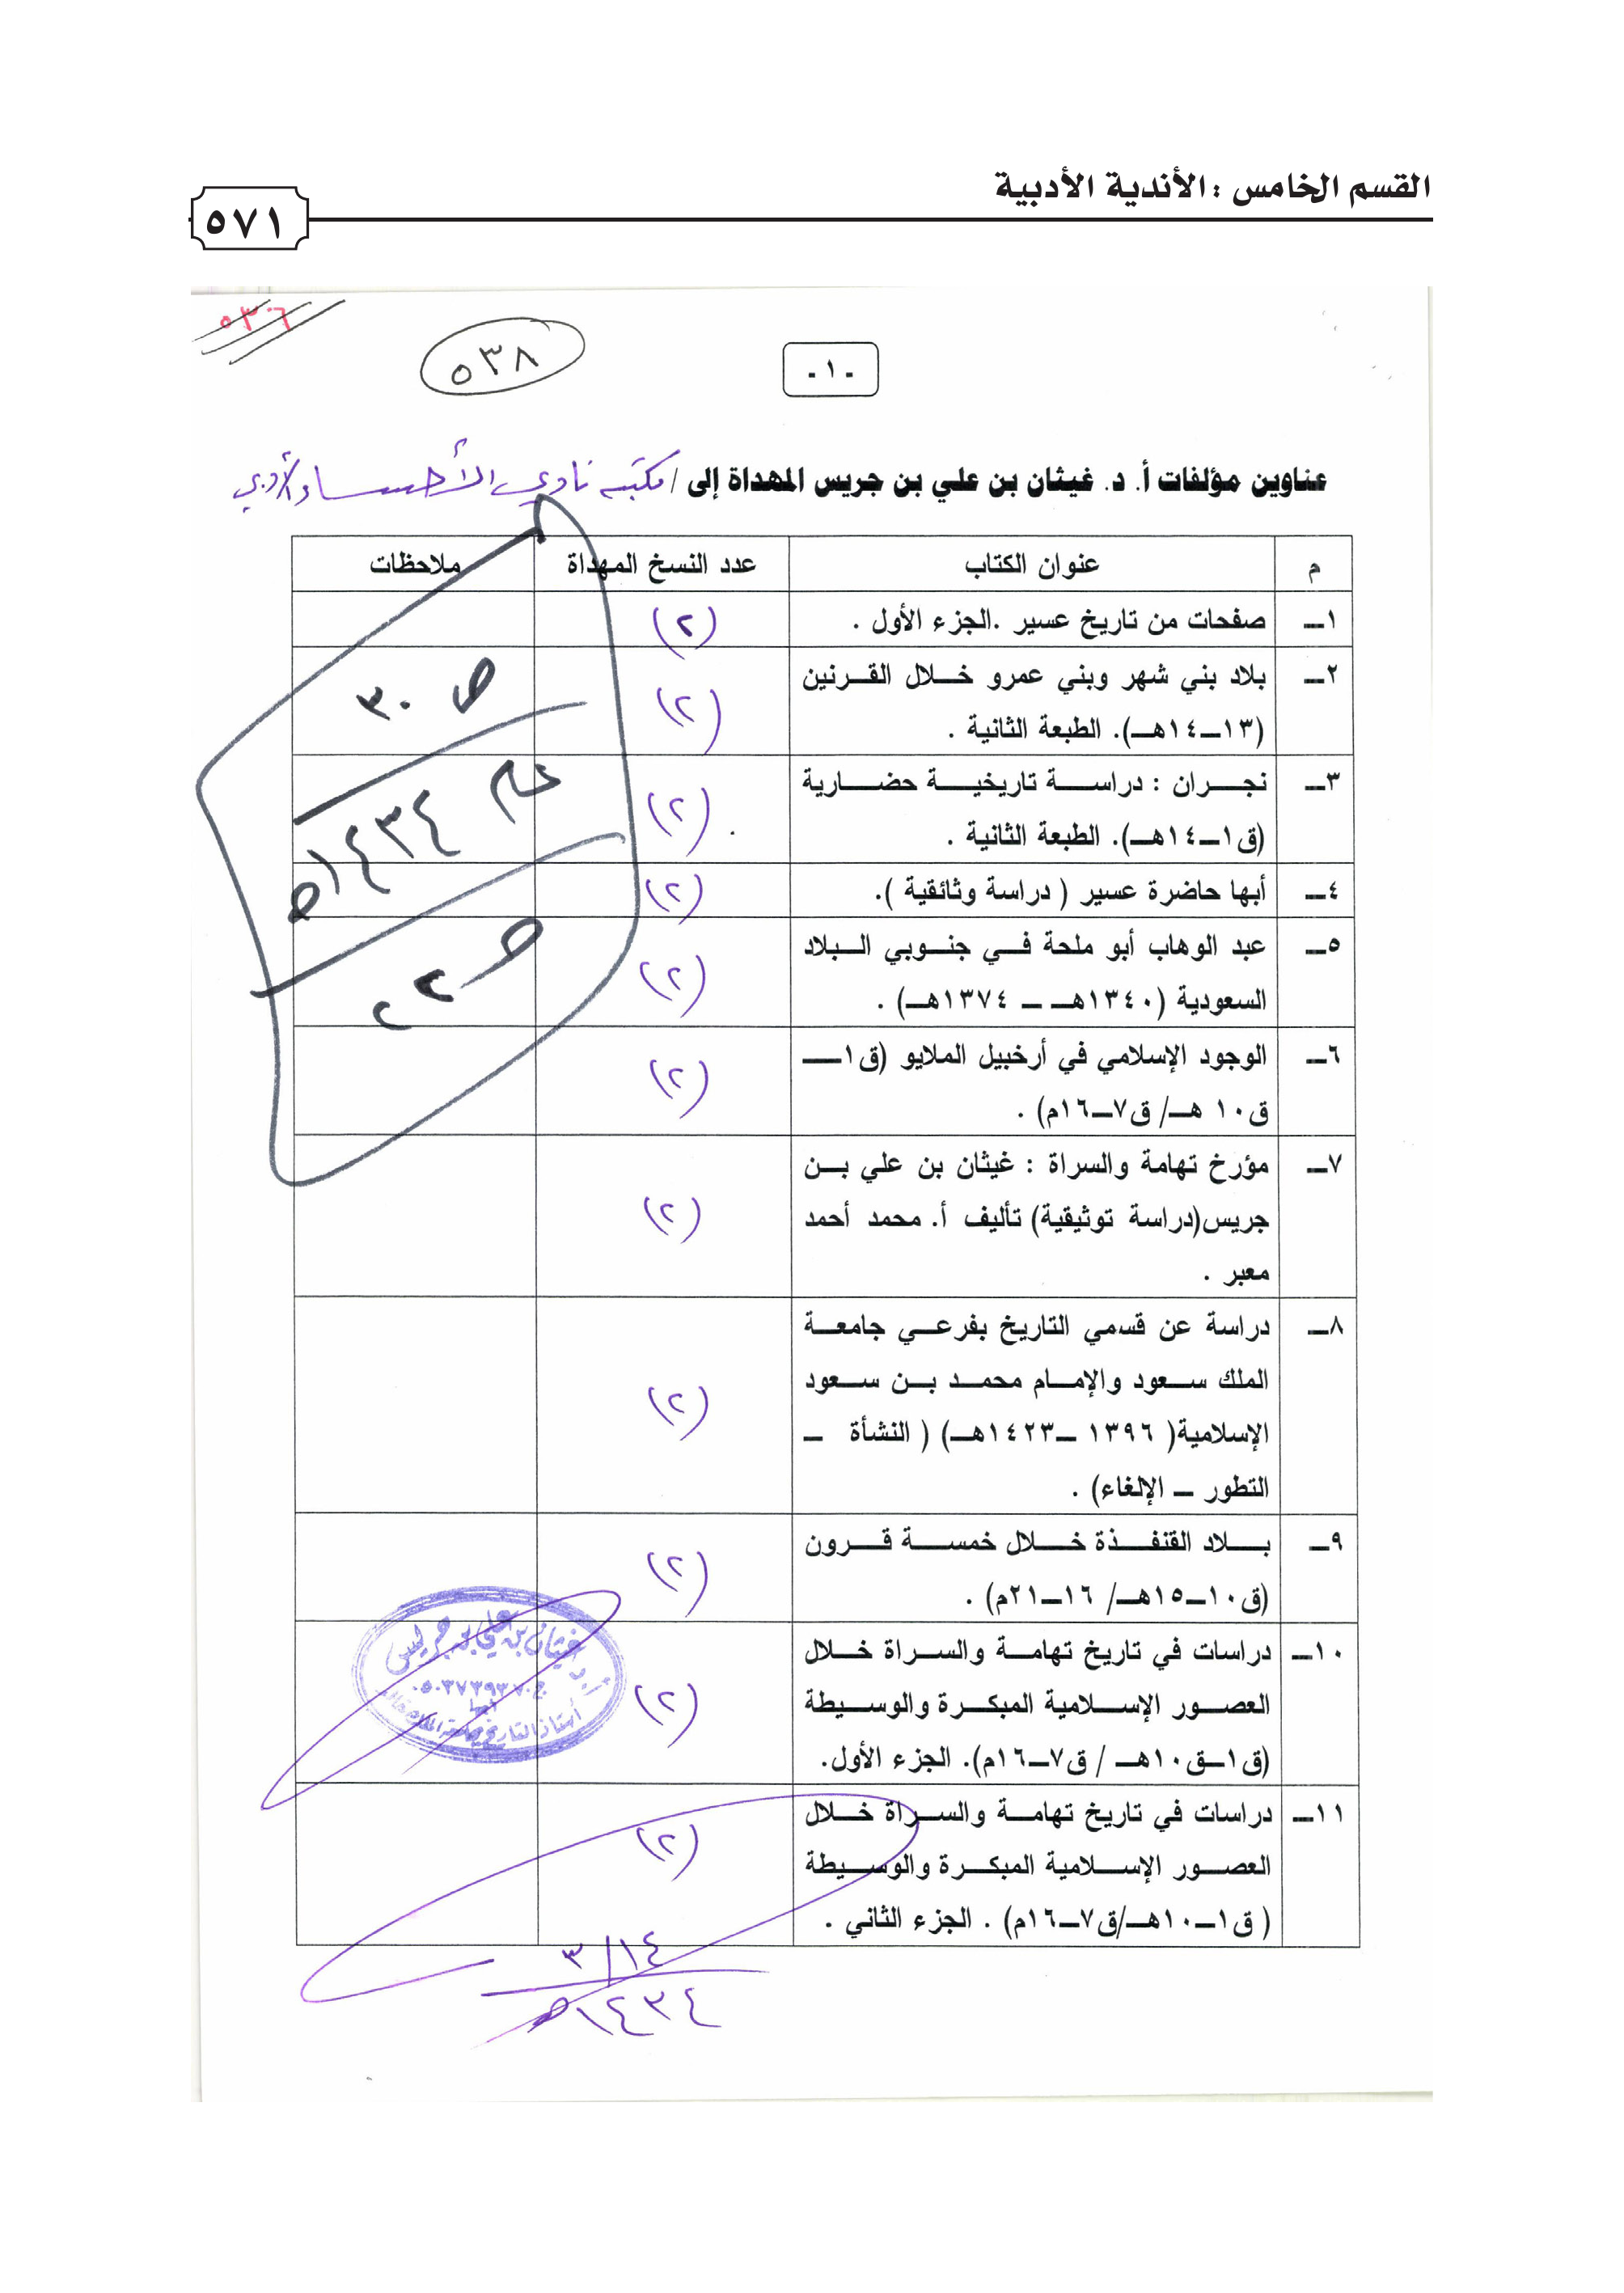 القسم الخامس : الأندية الأدبية
٥٧١
٥٣٠٦
٥٣٨
- ١ -
عناوين مؤلفات أ. د. غيثان بن علي بن جريس المهداة إلى / مكتبة نادي الأحساء الأدبي
م عنوان الكتاب عدد النسخ المهداة ملاحظات
١ــ صفحات من تاريخ عسير .الجزء الأول . (٢)
٢ــ بلاد بني شهر وبني عمرو خــلال القــرنين (٢)
(١٣ــ١٤هــ). الطبعة الثانية .
٣ــ نجــران : دراســة تاريخيــة حضــارية (٢)
(ق١ــ١٤هــ). الطبعة الثانية .
٤ــ أبها حاضرة عسير ( دراسة وثائقية ). (٢)
٥ــ عبد الوهاب أبو ملحة فــي جنــوبي الــبلاد (٢)
السعودية (١٣٤٠هــ ــ ١٣٧٤هــ) .
٦ــ الوجود الإسلامي في أرخبيل الملايو (ق١ــ (٢)
ق١٠ هــ/ ق٧ــ١٦م) .
٧ــ مؤرخ تهامة والسراة : غيثان بن علي بــن (٢)
جريس(دراسة توثيقية) تأليف أ. محمد أحمد
معبر .
٨ــ دراسة عن قسمي التاريخ بفرعــي جامعــة (٢)
الملك ســعود والإمــام محمــد بــن ســعود
الإسلامية( ١٣٩٦ ــ١٤٢٣هــ) ( النشأة ــ
التطور ــ الإلغاء) .
٩ــ بــلاد القنفــذة خــلال خمســة قــرون (٢)
(ق١٠ــ١٥هــ/ ١٦ــ٢١م) .
١٠ــ دراسات في تاريخ تهامــة والســراة خــلال (٢)
العصــور الإســلامية المبكــرة والوســيطة
(ق١ــق١٠هــ / ق٧ــ١٦م). الجزء الأول.
١١ــ دراسات في تاريخ تهامــة والســراة خــلال (٢)
العصــور الإســلامية المبكــرة والوســيطة
( ق١ــ١٠هــ/ق٧ــ١٦م) . الجزء الثاني .
ص ٣٠
عام ١٤٣٤هـ
ص ٢٢
أ.د. غيثان بن علي بن جريس
أبها
١٤/٣
١٤٣٤هـ